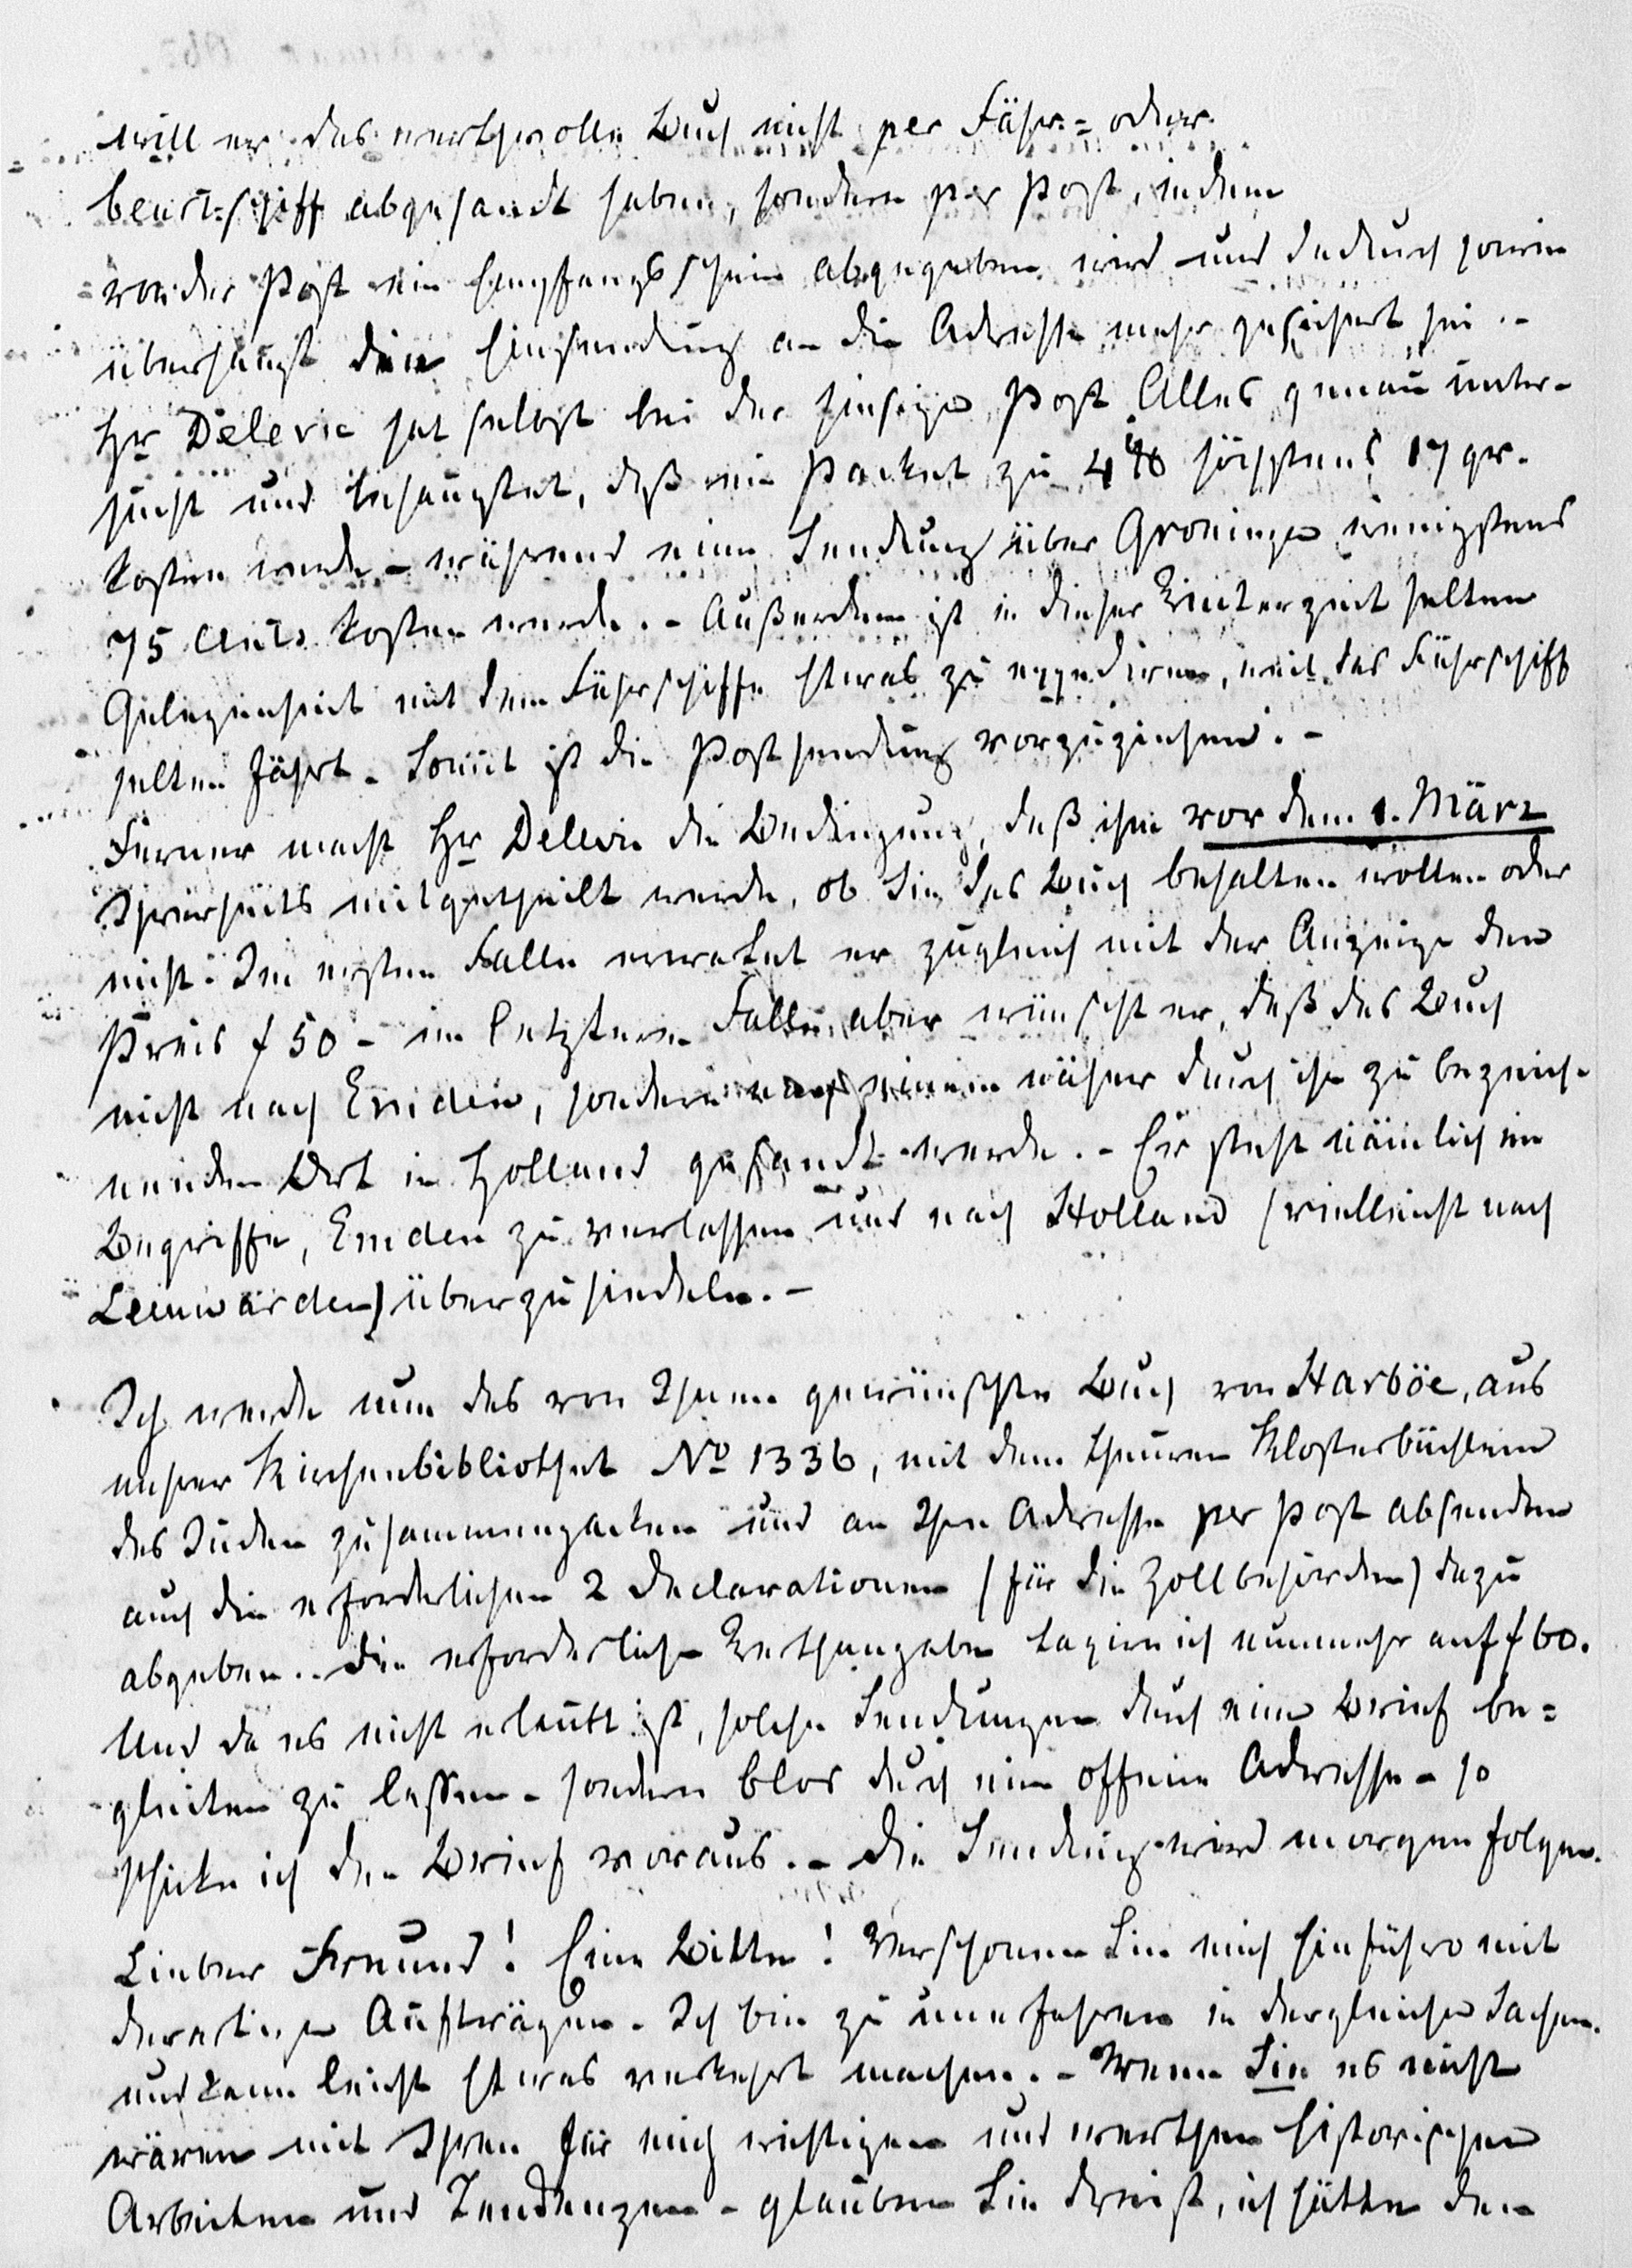 will er das werthvolle Buch nicht per Fähr= oder
beurtschiff abgesandt haben, sondern per Post, indem
von der Post ein Empfangsschein abgegeben wird und dadurch sowie
überhaupt die Einsendung an die Adresse mehr gesichert sei. -
Hr Delevie hat selbst bei der hiesigen Post Alles genau unter-
sucht und behauptet, daß ein Packet zu 4 ℔ höchstens 17 gr.
kosten werde - während eine Sendung über Groningen wenigstens
75 Cents kosten werde. - Außerdem ist in dieser Winterzeit selten
Gelegenheit mit dem Fährschiffe Etwas zu expediren, weil das Fährschiff
selten fährt - Somit ist die Postsendung vorzuziehen. -
Ferner macht Hr Delevie die Bedingung, daß ihm vor dem 1. März
Ihrerseits mitgetheilt werde, ob Sie das Buch behalten wollen oder
nicht. Im ersten Falle erwartet er zugleich mit der Anzeige den
Preis f 50 - im letztern Falle aber wünscht er, daß das Buch
nicht nach Emden, sondern nach einem näher durch ihn zu bezeich-
nenden Ort in Holland gesandt werde. - Er steht nämlich im
Begriffe, Emden zu verlassen und nach Holland (vielleicht nach
Leeuwarden) überzusiedeln. -
Ich werde nun das von Ihnen gewünschte Buch von Harböe, aus
unsrer Kirchenbibliothek No 1336, mit dem theuren Klosterbüchlein
des Juden zusammenpacken und an Ihre Adresse per Post absenden
auch die erforderlichen 2 Declarationen (für die Zollbehörden) dazu
abgeben. - Die erforderliche Werthangabe taxire ich nunmehr auf f 60.
Und da es nicht erlaubt ist, solche Sendungen durch einen Brief be=
gleiten zu lassen - sondern blos durch eine offene Adresse - so
schicke ich den Brief voraus. - Die Sendung wird morgen folgen.
Lieber Freund! Eine Bitte! Verschonen Sie mich hinführo mit
derartigen Aufträgen. Ich bin zu unerfahren in dergleichen Sachen
und kann leicht Etwas verkehrt machen. - Wenn Sie es nicht
wären mit Ihren für mich wichtigen und werthen historischen
Arbeiten und Tendenzen - glauben Sie dreist, ich hätte den